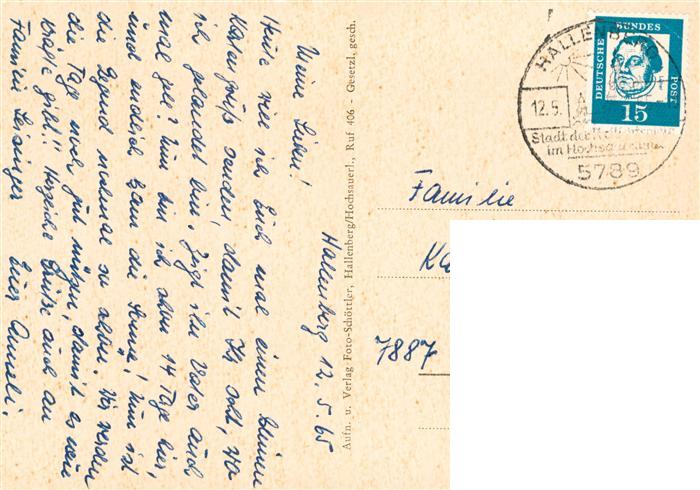 Hallenberg 12.5.65
Meine Lieben!
Heute will ich Euch mal einen kleinen
Kartengruß senden, damit Ihr seht, wo
ich gelandet bin. Zeigt ihn Vater auch
mal gell? Nun bin ich schon 14 Tage hier,
und endlich kam die Sonne! Nun ist
die Gegend nochmal so schön. Wir werden
die Tage noch gut nützen, damit es neue
Kräfte gibt! Herzliche Grüße auch an
Familie Leisinger Eure Anneli.
Aufn. u. Verlag Foto-Schöttler, Hallenberg/Hochsauerl., Ruf 406 - Gesetzl. gesch.
HALLENBERG
12.5.
Stadt der
im Hochsauerland
5789
DEUTSCHE BUNDES POST
15
Familie
Ka
7887